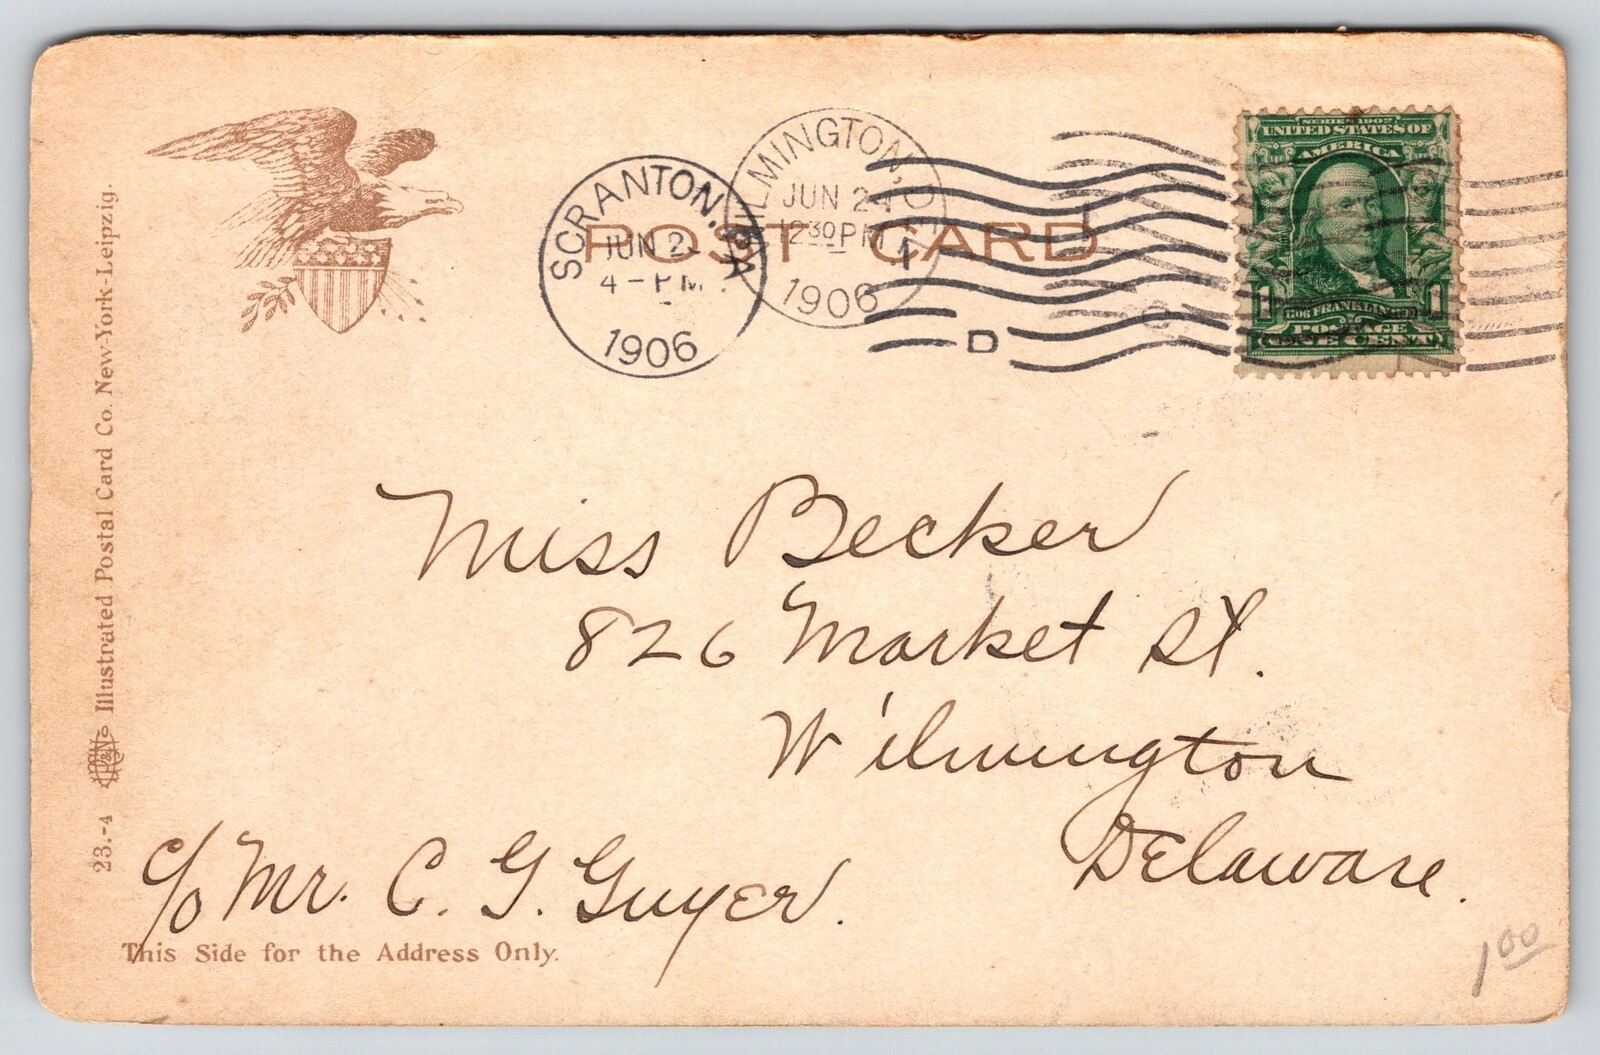 SCRANTON, PA
JUN 2
4-PM
1906
WILMINGTON,
JUN 24
12 30 PM
1906
POST CARD
D
SERIES 1902
UNITED STATES OF
AMERICA
1 1706 FRANKLIN 1790 1
POSTAGE
ONE CENT
Miss Becker
826 Market St.
Wilmington
Delaware.
c/o Mr. C. G. Guyer.
This Side for the Address Only.
23.-4 Illustrated Postal Card Co. New-York-Leipzig.
1 00